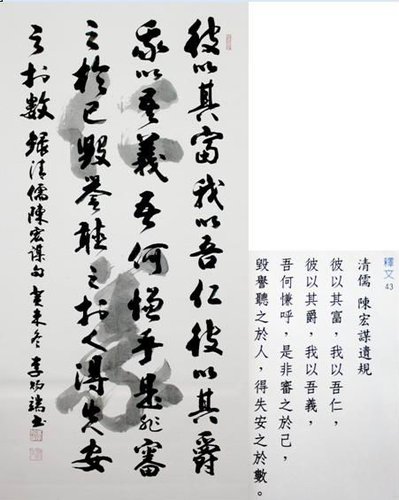 釋文 43
清儒 陳宏謀遺規
彼以其富，我以吾仁，
彼以其爵，我以吾義，
吾何慊呼，是非審之於己，
毀譽聽之於人，得失安之於數。
彼以其富我以吾仁彼以其爵
我以吾義吾何慊乎是非審
之於己毀譽聽之於人得失安
之於數 錄清儒陳宏謀句 癸未冬 李端書